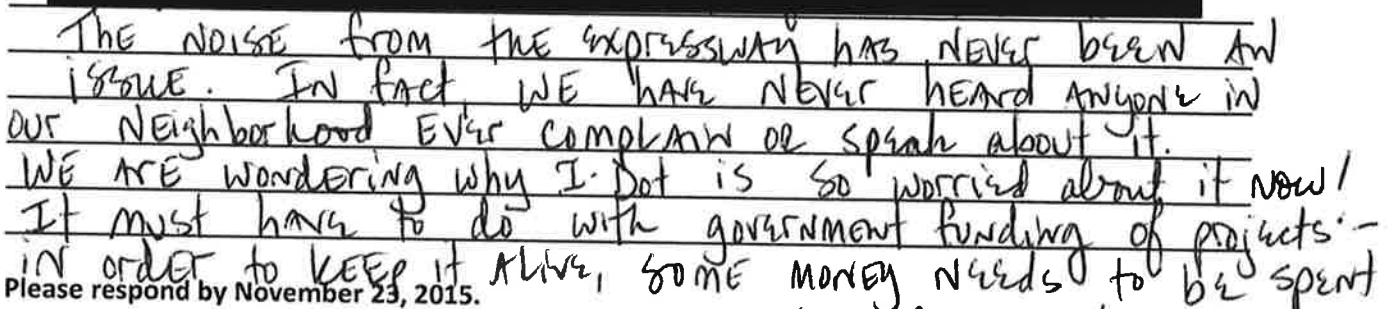 The noise from the expressway has never been an
issue. In fact, we have never heard anyone in
our neighborhood ever complain or speak about it.
We are wondering why I-Dot is so worried about it now!
It must have to do with government funding of projects -
in order to keep it alive, some money needs to be spent
Please respond by November 23, 2015.